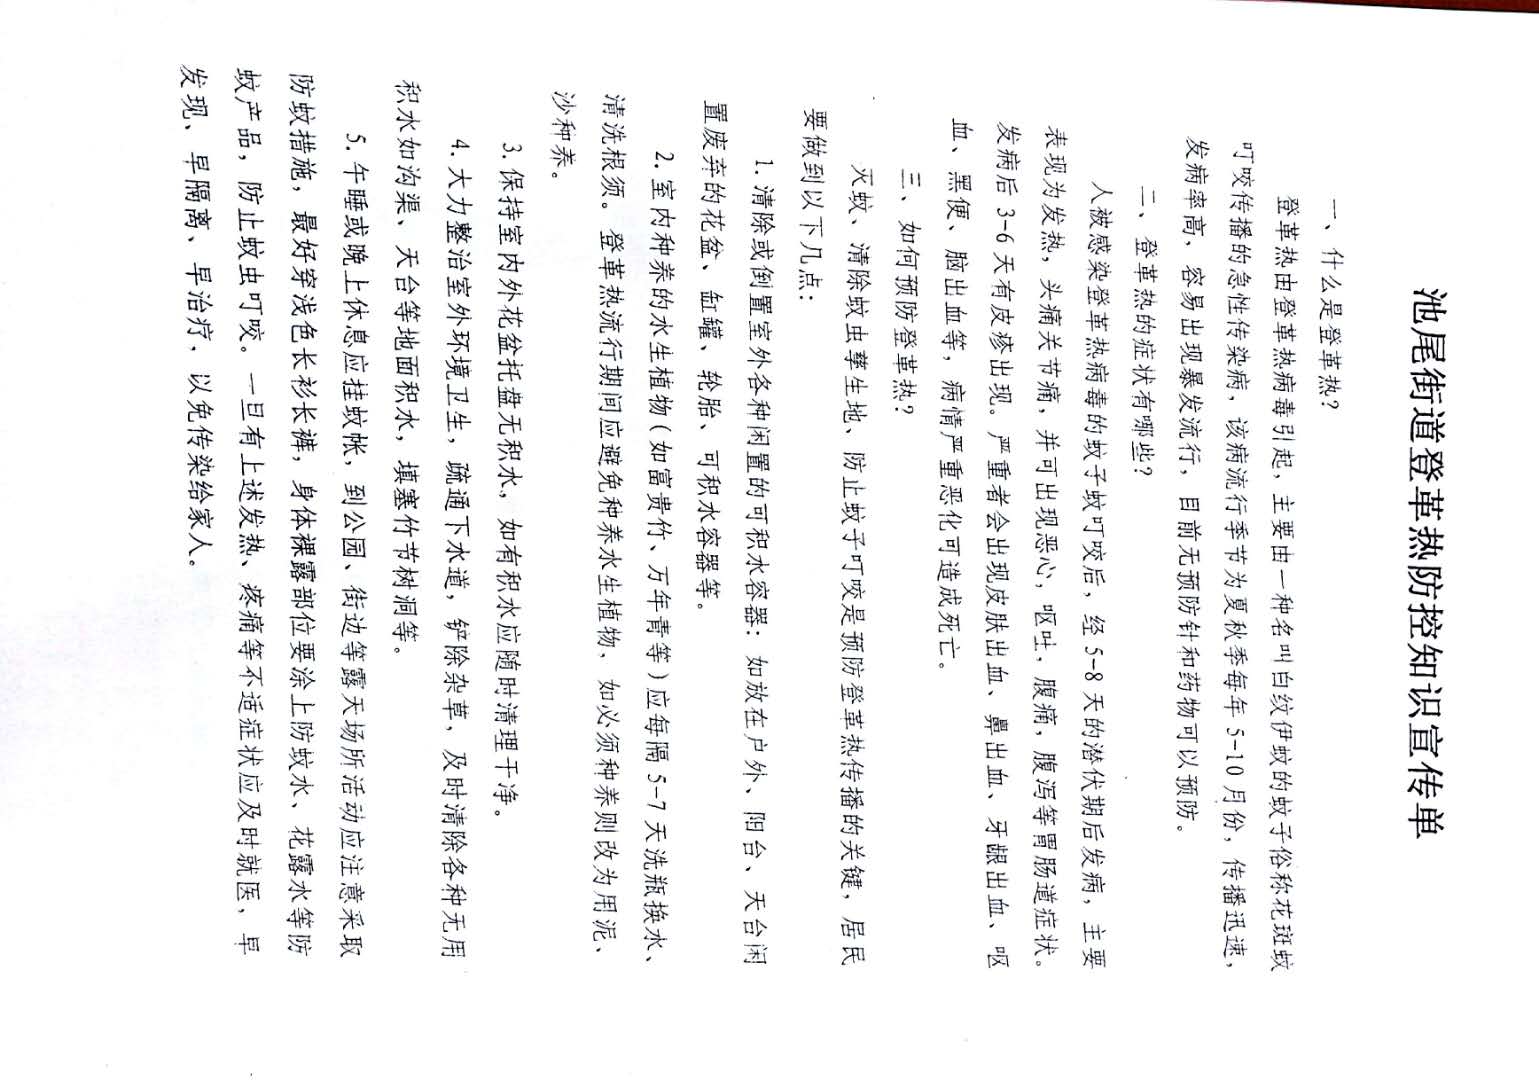 池尾街道登革热防控知识宣传单
一、什么是登革热?
登革热由登革热病毒引起，主要由一种名叫白纹伊蚊的蚊子俗称花斑蚊
叮咬传播的急性传染病，该病流行季节为夏秋季每年5-10月份，传播迅速，
发病率高、容易出现暴发流行，目前无预防针和药物可以预防。
二、登革热的症状有哪些?
人被感染登革热病毒的蚊子蚊叮咬后，经5-8天的潜伏期后发病，主要
表现为发热，头痛关节痛，并可出现恶心，呕吐，腹痛，腹泻等胃肠道症状。
发病后3-6天有皮疹出现。严重者会出现皮肤出血、鼻出血、牙龈出血、呕
血、黑便、脑出血等，病情严重恶化可造成死亡。
三、如何预防登革热?
灭蚊、清除蚊虫孳生地、防止蚊子叮咬是预防登革热传播的关键，居民
要做到以下几点:
1.清除或倒置室外各种闲置的可积水容器: 如放在户外、阳台、天台闲
置废弃的花盆、缸罐、轮胎、可积水容器等。
2.室内种养的水生植物(如富贵竹、万年青等)应每隔5-7天洗瓶换水、
清洗根须。登革热流行期间应避免种养水生植物，如必须种养则改为用泥、
沙种养。
3.保持室内外花盆托盘无积水，如有积水应随时清理干净。
4.大力整治室外环境卫生，疏通下水道，铲除杂草，及时清除各种无用
积水如沟渠、天台等地面积水，填塞竹节树洞等。
5.午睡或晚上休息应挂蚊帐，到公园、街边等露天场所活动应注意采取
防蚊措施，最好穿浅色长衫长裤，身体裸露部位要涂上防蚊水、花露水等防
蚊产品，防止蚊虫叮咬。一旦有上述发热、疼痛等不适症状应及时就医，早
发现、早隔离、早治疗，以免传染给家人。